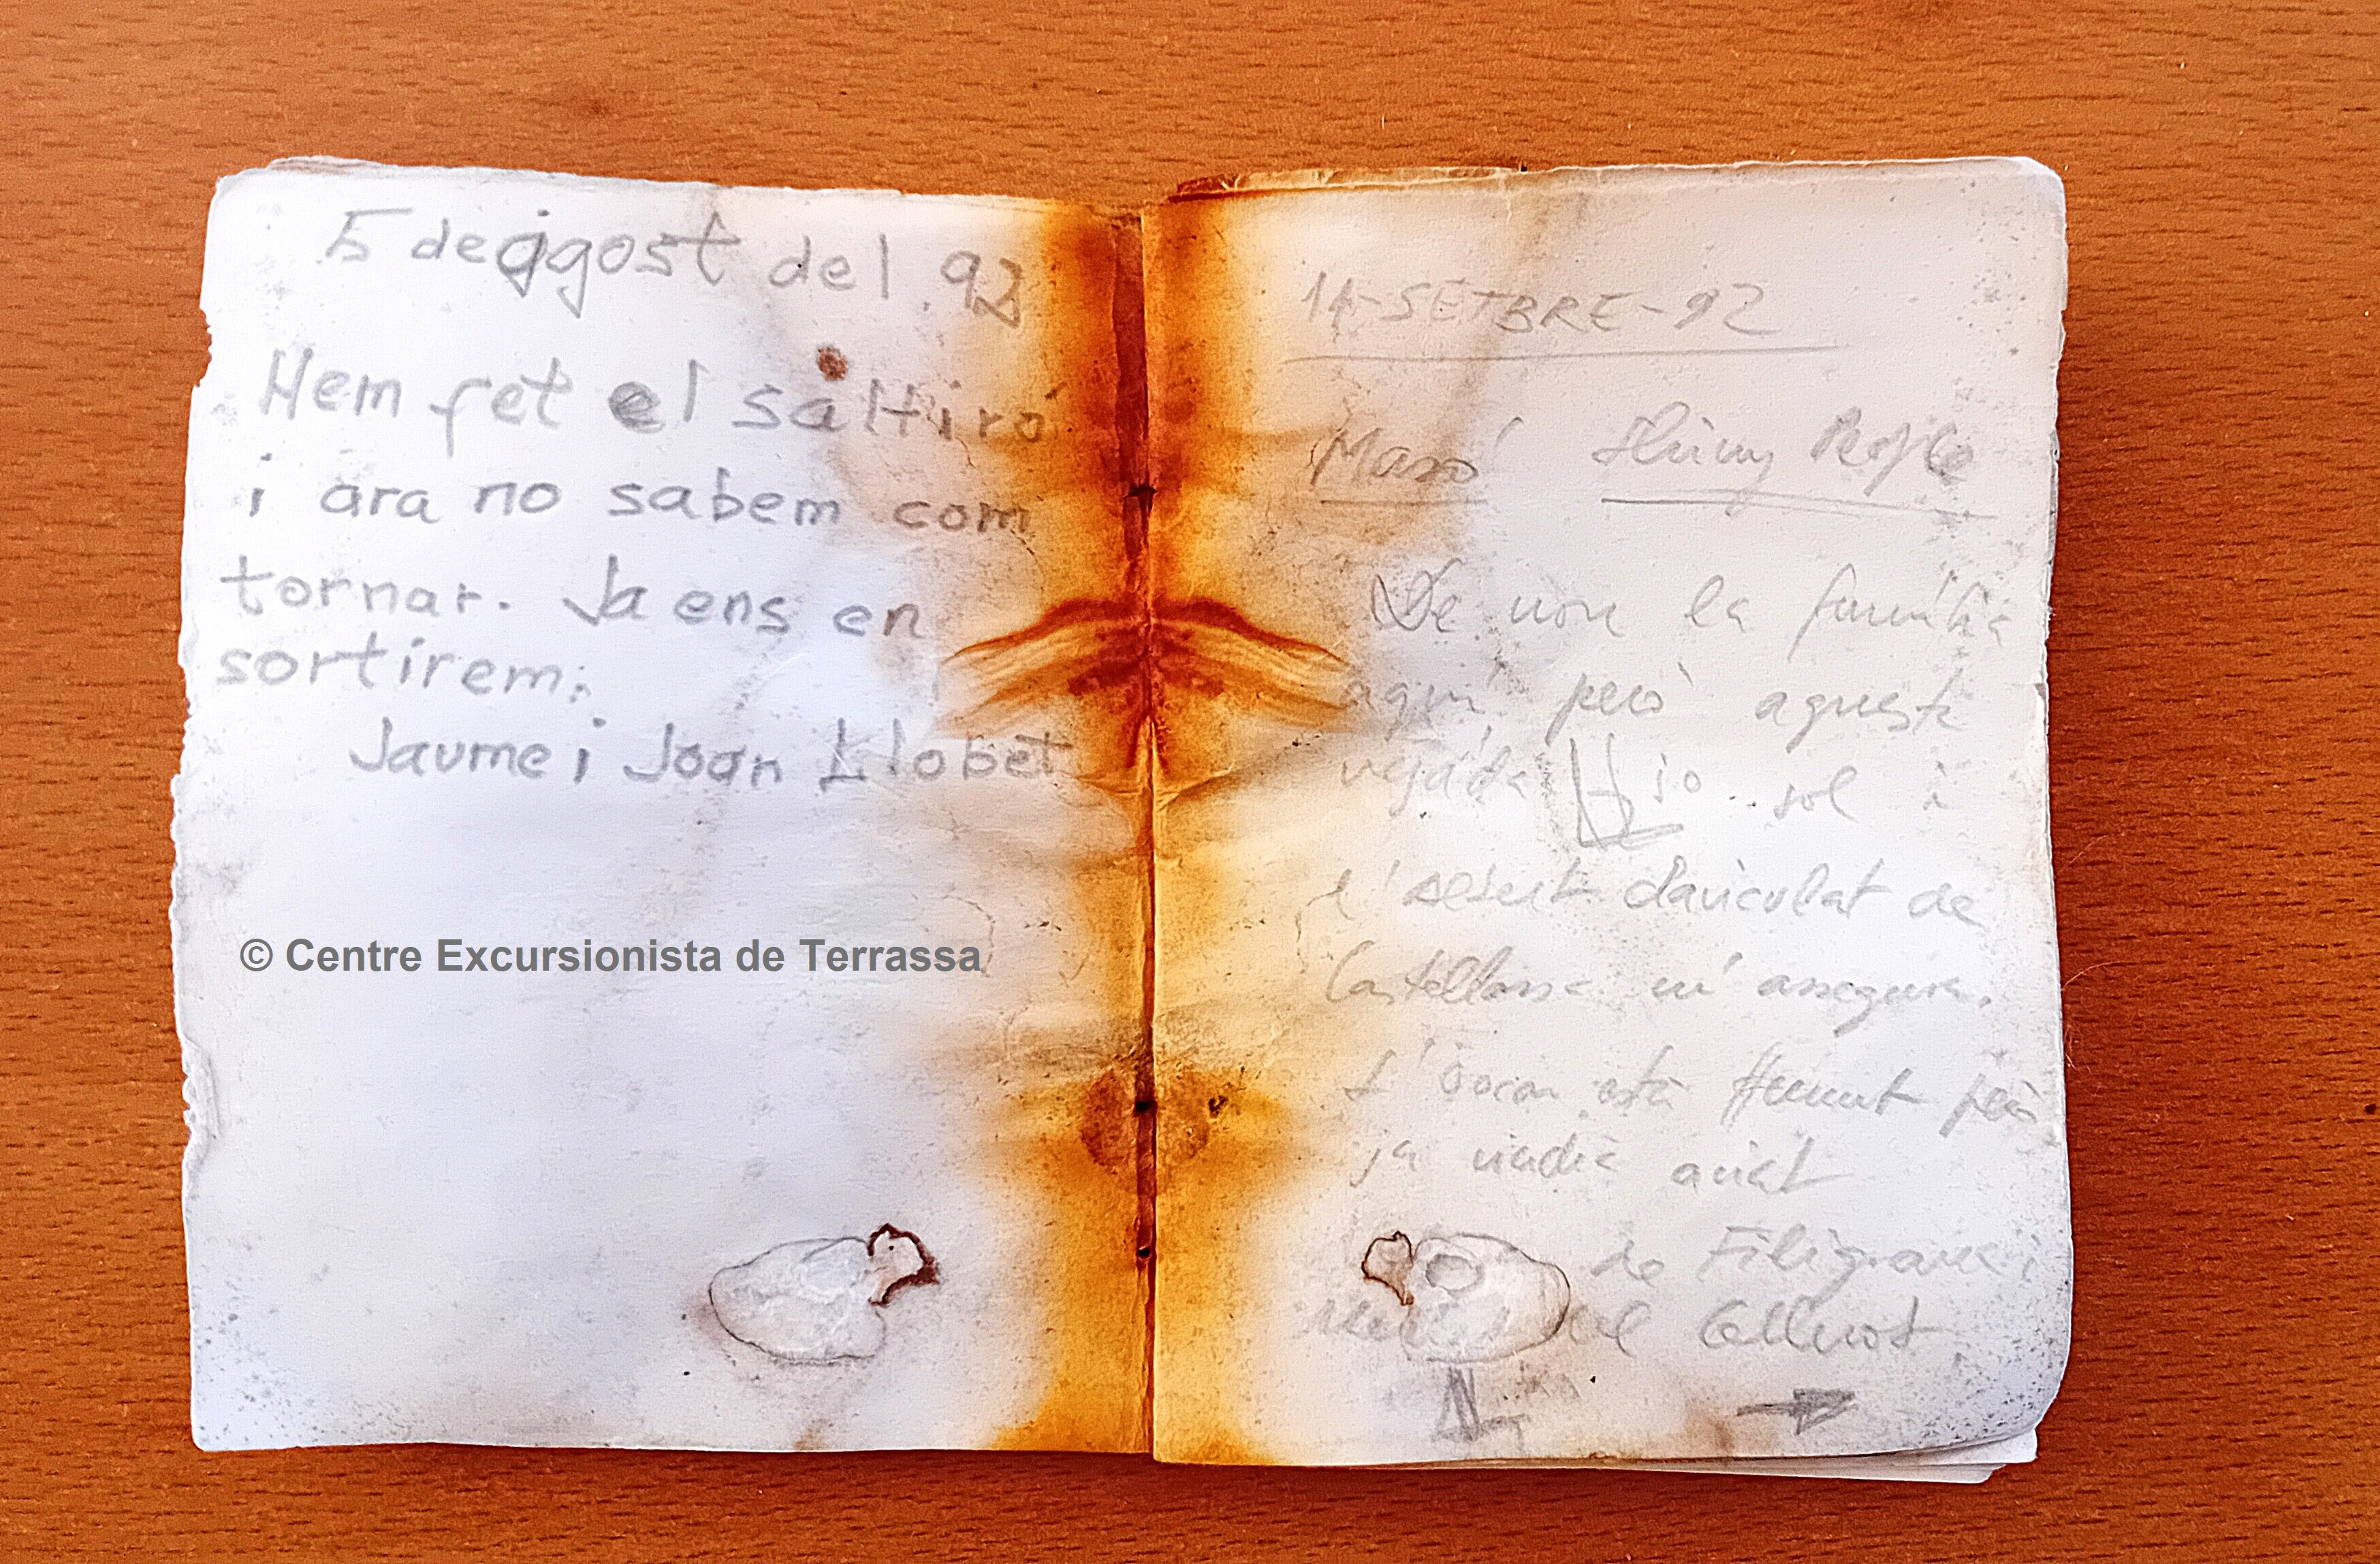 5 de agost del 92
Hem fet el saltiró
i ara no sabem com
tornar. Ja ens en
sortirem.
Jaume i Joan Llobet
© Centre Excursionista de Terrassa
14-SETBRE-92
Masó Shiny People
De nou la família
aquí però aquesta
vegada jo sol i
l'
Castellassa m'assegura.
L'Òscar està però
ja vindrà aviat
de Filigrana i
el Cellerot